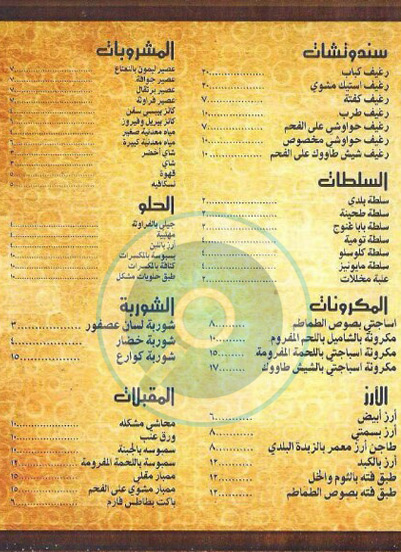 سندوتشات
رغيف كباب ٢٠
رغيف استيك مشوي ٢٠
رغيف كفتة ٧
رغيف طرب ١٠
رغيف حواوشي على الفحم ٧
رغيف حواوشي مخصوص ١٠
رغيف شيش طاووك على الفحم ١٠
السلطات
سلطة بلدي ٢
سلطة طحينة ٢
سلطة بابا غنوج ٢
سلطة تومية
سلطة كلوسلو
سلطة مايونيز ٤
علبة مخللات ٢
المكرونات
اسباجتي بصوص الطماطم ٨
مكرونة بالشاميل باللحم المفروم ١٠
مكرونة اسباجتي باللحمة المفرومة ١٥
مكرونة اسباجتي بالشيش طاووك ١٧
الأرز
أرز أبيض ٦
أرز بسمتي ٨
طاجن أرز معمر بالزبدة البلدي ٨
أرز بالكبد ١٢
طبق فته بالثوم والخل ١٢
طبق فته بصوص الطماطم ١٢
المشروبات
عصير ليمون بالنعناع ٧
عصير جوافة ٧
عصير برتقال ٧
عصير فراولة ٧
كانز بيبسي سفن
كانز بيريل وفيروز
مياه معدنية صغير
مياه معدنية كبيرة
شاي أخضر
شاي
قهوة
نسكافيه ٥
الحلو
جيلي بالفراولة
مهلبية
أرز باللبن
بسبوسة بالمكسرات ١٠
كنافة بالمكسرات ١٠
طبق حلويات مشكل ١٠
الشوربة
شوربة لسان عصفور ٣
شوربة خضار ٤
شوربة كوارع ١٥
المقبلات
محاشي مشكله ١٠
ورق عنب ١٠
سمبوسه بالجبنه ١٠
سمبوسه باللحمة المفرومة ١٢
ممبار مقلي ١٥
ممبار مشوي على الفحم ١٥
باكت بطاطس فارم ٩